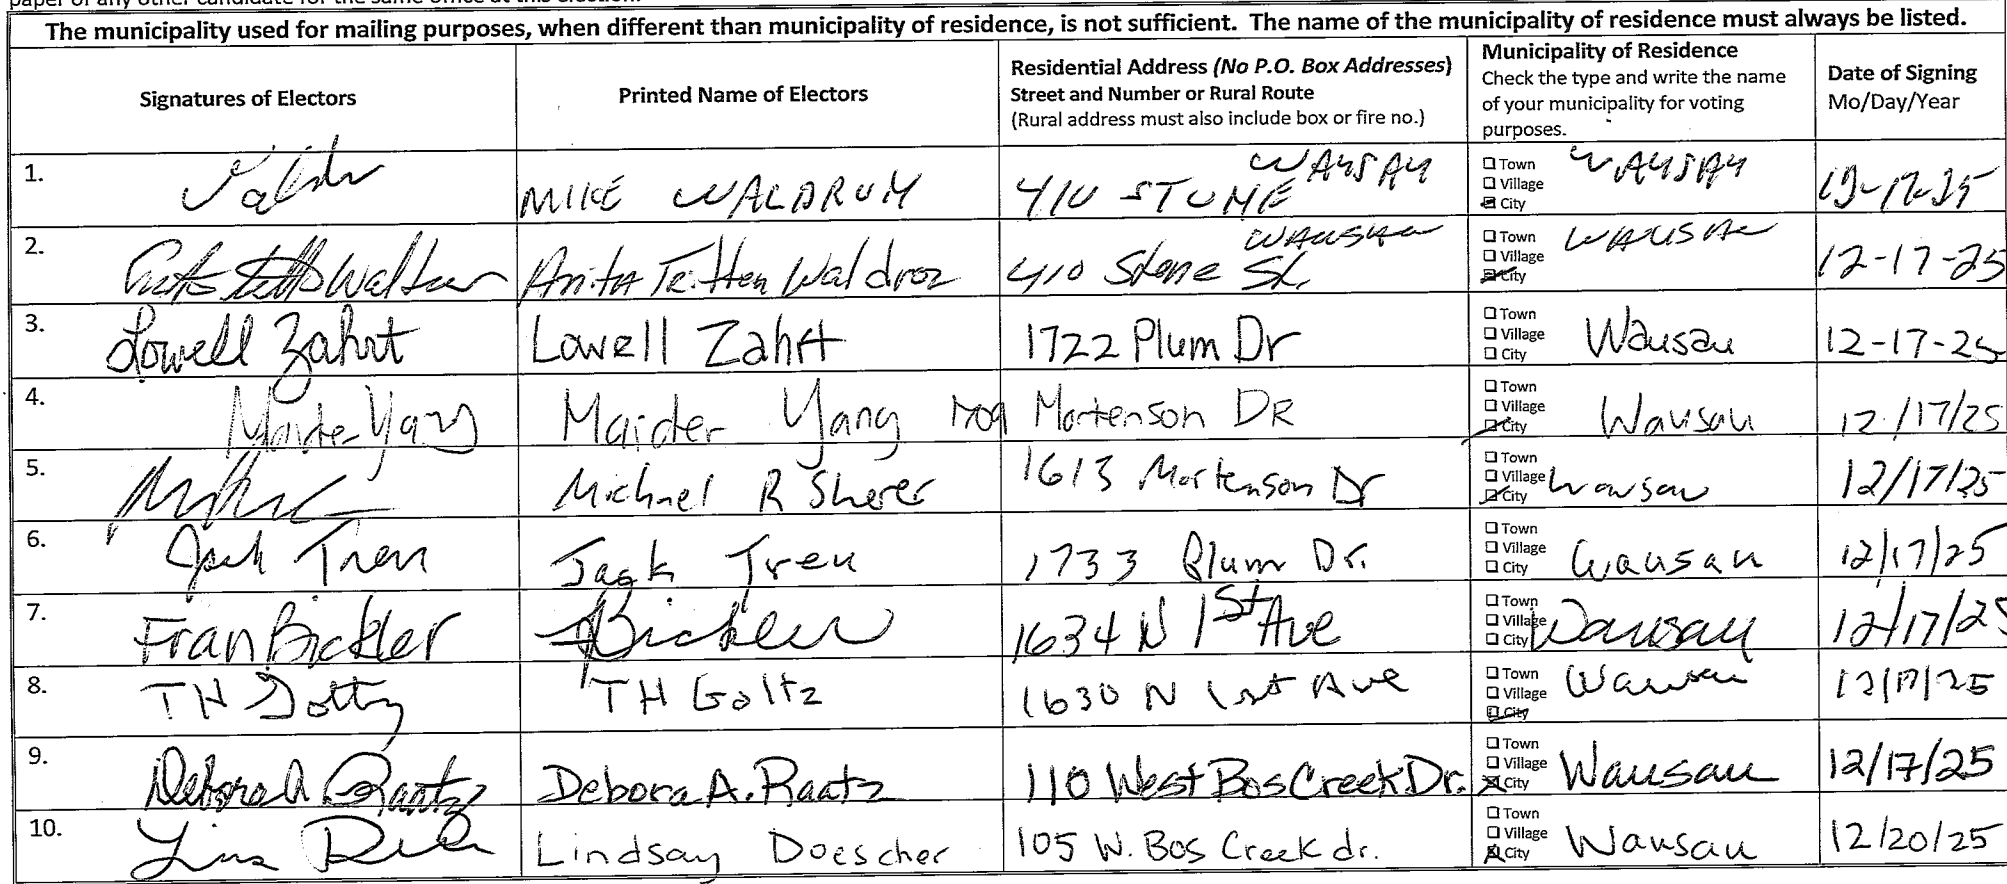 The municipality used for mailing purposes, when different than municipality of residence, is not sufficient. The name of the municipality of residence must always be listed.
Signatures of Electors
Printed Name of Electors
Residential Address (No P.O. Box Addresses)
Street and Number or Rural Route
(Rural address must also include box or fire no.)
Municipality of Residence
Check the type and write the name
of your municipality for voting
purposes.
Date of Signing
Mo/Day/Year
1. MIKE WALDRUM 410 STONE WAUSAU
Town
Village
City
WAUSAU
2. Anita Waldroz 410 Stone St. WAUSAU
Town
Village
City
WAUSAU 12-17-25
3. Lowell Zahrt Lowell Zahrt 1722 Plum Dr
Town
Village
City
Wausau 12-17-25
4. Maider Yang Maider Yang 1709 Mortenson DR
Town
Village
City
Wausau 12/17/25
5. Michael R Sherer 1613 Mortenson Dr
Town
Village
City
Wausau 12/17/25
6. Jack Treu Jack Treu 1733 Plum Dr.
Town
Village
City
Wausau 12/17/25
7. Fran Bickler Bickler 1634 N 1st Ave
Town
Village
City
Wausau 12/17/25
8. TH Goltz TH Goltz 1630 N 1st Ave
Town
Village
City
Wausau 12/17/25
9. Debora A Raatz Debora A. Raatz 110 West Bos Creek Dr.
Town
Village
City
Wausau 12/17/25
10. Lindsay Doescher 105 W. Bos Creek dr.
Town
Village
City
Wausau 12/20/25